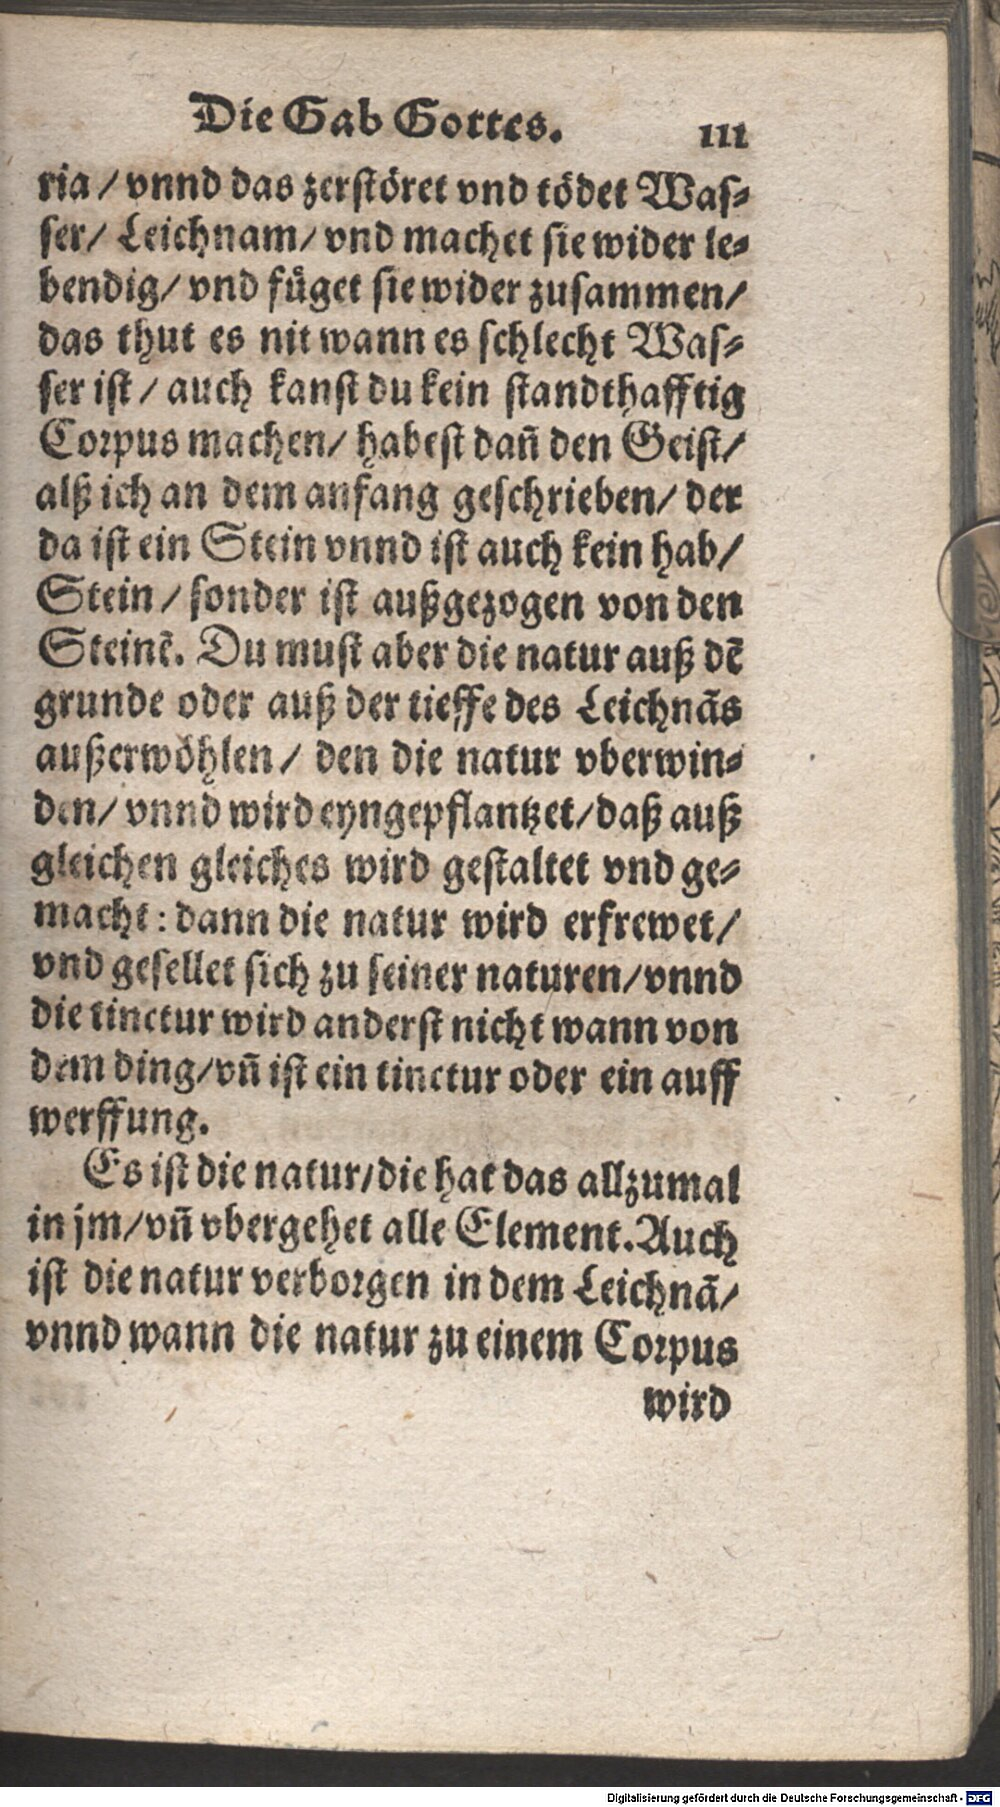 Die Gab Gottes. 111
ria / vnnd das zerstöret vnd tödet Was⸗
ser/ Leichnam/ vnd machet sie wider le⸗
bendig/ vnd füget sie wider zusammen/
das thut es nit wann es schlecht Was⸗
ser ist / auch kanst du kein standthafftig
Corpus machen/ habest dañ den Geist/
alß ich an dem anfang geschrieben/ der
da ist ein Stein vnnd ist auch kein hab/
Stein / sonder ist außgezogen von den
Steinẽ. Du must aber die natur auß dẽ
grunde oder auß der tieffe des Leichnãs
außerwöhlen / den die natur vberwin⸗
den/ vnnd wird eyngepflantzet/daß auß
gleichen gleiches wird gestaltet vnd ge⸗
macht: dann die natur wird erfrewet/
vnd gesellet sich zu seiner naturen/vnnd
die tinctur wird anderst nicht wann von
dem ding/vñ ist ein tinctur oder ein auff
werffung.
Es ist die natur/die hat das allzumal
in jm/vñ vbergehet alle Element. Auch
ist die natur verborgen in dem Leichnã/
vnnd wann die natur zu einem Corpus
wird
Digitalisierung gefördert durch die Deutsche Forschungsgemeinschaft - DFG